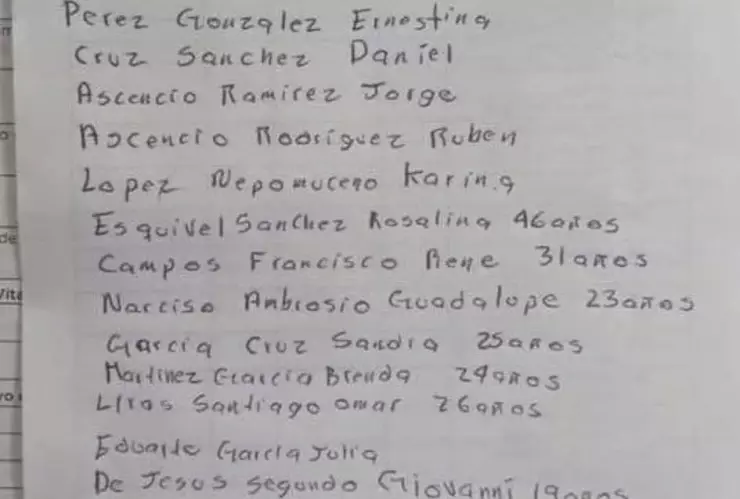 Perez Gonzalez Ernestina
Cruz Sanchez Daniel
Ascencio Ramirez Jorge
Ascencio Rodriguez Ruben
Lopez Nepomuceno Karina
Esquivel Sanchez Rosalina 46años
Campos Francisco Rene 31años
Narciso Ambrosio Guadalupe 23años
Garcia Cruz Sandra 25años
Martinez Garcia Brenda 24años
Santiago omar 26años
Garcia Julia
De Jesus segundo Giovanni 19años